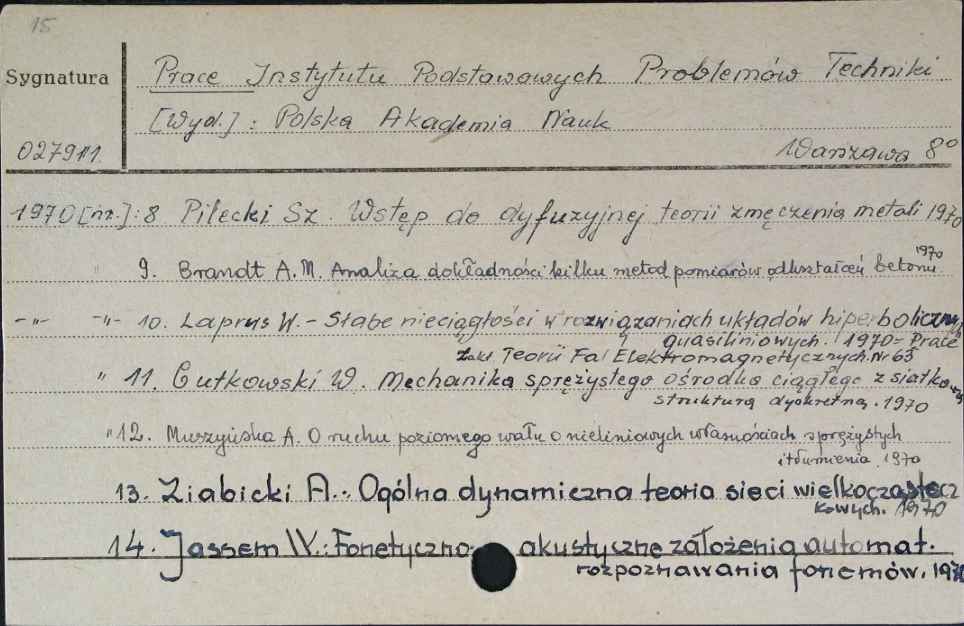 15
Sygnatura Prace Instytutu Podstawowych Problemów Techniki
[Wyd.]: Polska Akademia Nauk
027911. Warszawa 8°
1970 [nr.]: 8 Pilecki Sz. Wstęp do dyfuzyjnej teorii zmęczenia metali 1970
" 9. Brandt A.M. Analiza dokładności kilku metod pomiarów odkształceń betonu 1970
-"- -"- 10. Laprus W. - Słabe nieciągłości w rozwiązaniach układów hiperbolicznych
quasiliniowych. 1970 = Prace
Zakł. Teorii Fal Elektromagnetycznych. Nr 63
" 11. Gutkowski W. Mechanika sprężystego ośrodka ciągłego z siatkową
strukturą dyskretną. 1970
" 12. Muszyńska A. O ruchu poziomego wału o nieliniowych własnościach sprężystych
i tłumienia. 1970
13. Ziabicki A.: Ogólna dynamiczna teoria sieci wielkocząstecz
kowych. 1970
14. Jassem W.: Fonetyczno- akustyczne założenia automat.
rozpoznawania fonemów. 1970